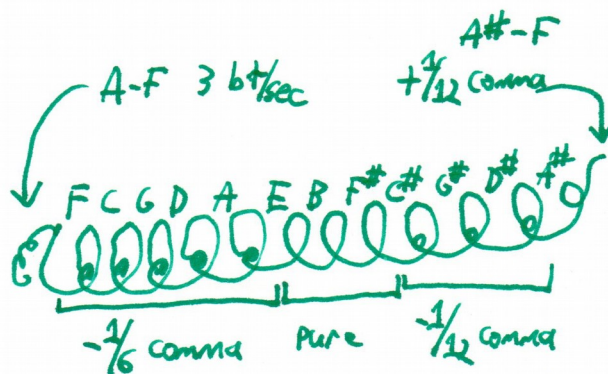 A#-F
A-F 3 bt/sec
+1/12 comma
F C G D A E B F# C# G# D# A#
-1/6 comma pure -1/12 comma